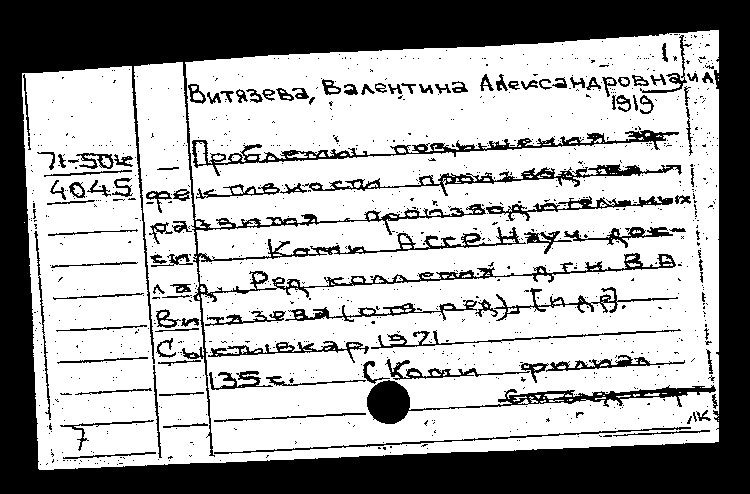 1.
Витязева, Валентина Александровна и др
1919
71-50к — Проблемы повышения эф-
4045 фективности производства и
развития производительных
сил Коми АССР. Науч. док-
лад. Ред коллегия: д.г.н. В.В
Витязева (отв. ред), [и др].
Сыктывкар, 1971.
135 с. (Коми филиал
см след. кар
7